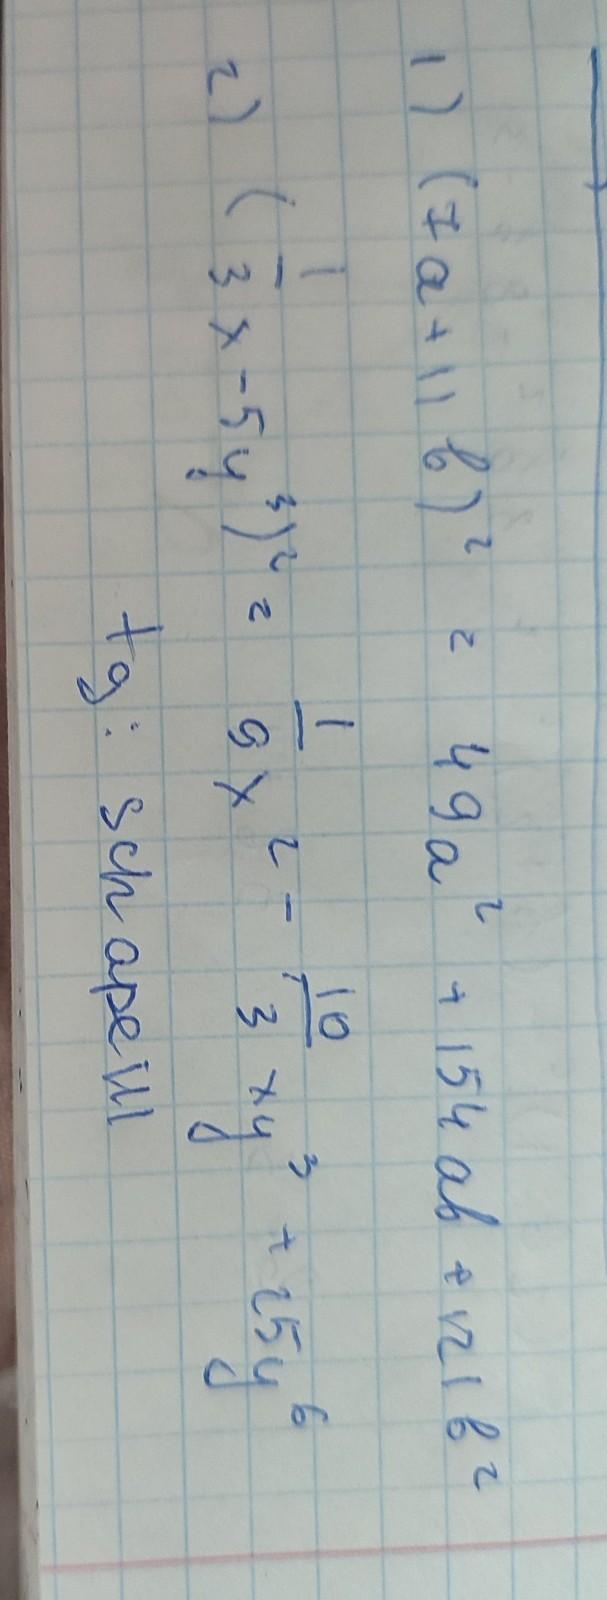 1) (7a+11b)² = 49a² + 154ab + 121b²
2) (1/3 x - 5y³)² = 1/9 x² - 10/3 xy³ + 25y⁶
tg: schapeill